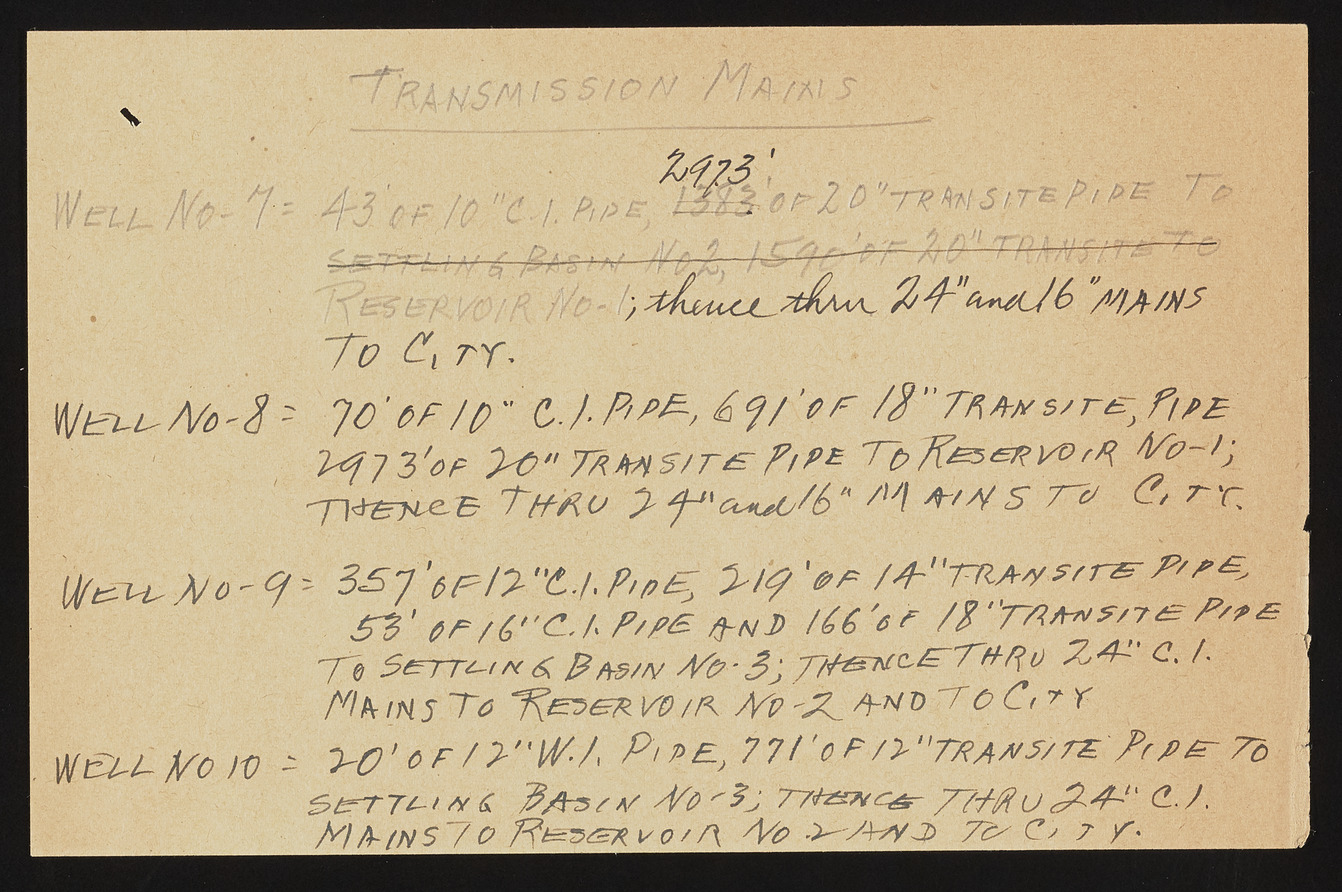 TRANSMISSION MAINS
2973'
WELL NO-7= 43' OF 10" C.I. PIPE, 1383' OF 20" TRANSITE PIPE TO
SETTLING BASIN NO2, 1590' OF 20" TRANSITE TO
RESERVOIR NO-1; thence thru 24" and 16" MAINS
TO CITY.
WELL NO-8= 70' OF 10" C.I. PIPE, 691' OF 18" TRANSITE, PIPE
2973' OF 20" TRANSITE PIPE TO RESERVOIR NO-1;
THENCE THRU 24" and 16" MAINS TO CITY.
WELL NO-9= 357' OF 12" C.I. PIPE, 219' OF 14" TRANSITE PIPE,
53' OF 16" C.I. PIPE AND 166' OF 18" TRANSITE PIPE
TO SETTLING BASIN NO-3; THENCE THRU 24" C.I.
MAINS TO RESERVOIR NO-2 AND TO CITY
WELL NO 10 = 20' OF 12" W.I. PIPE, 771' OF 12" TRANSITE PIPE TO
SETTLING BASIN NO-3; THENCE THRU 24" C.I.
MAINS TO RESERVOIR NO.2 AND TO CITY.